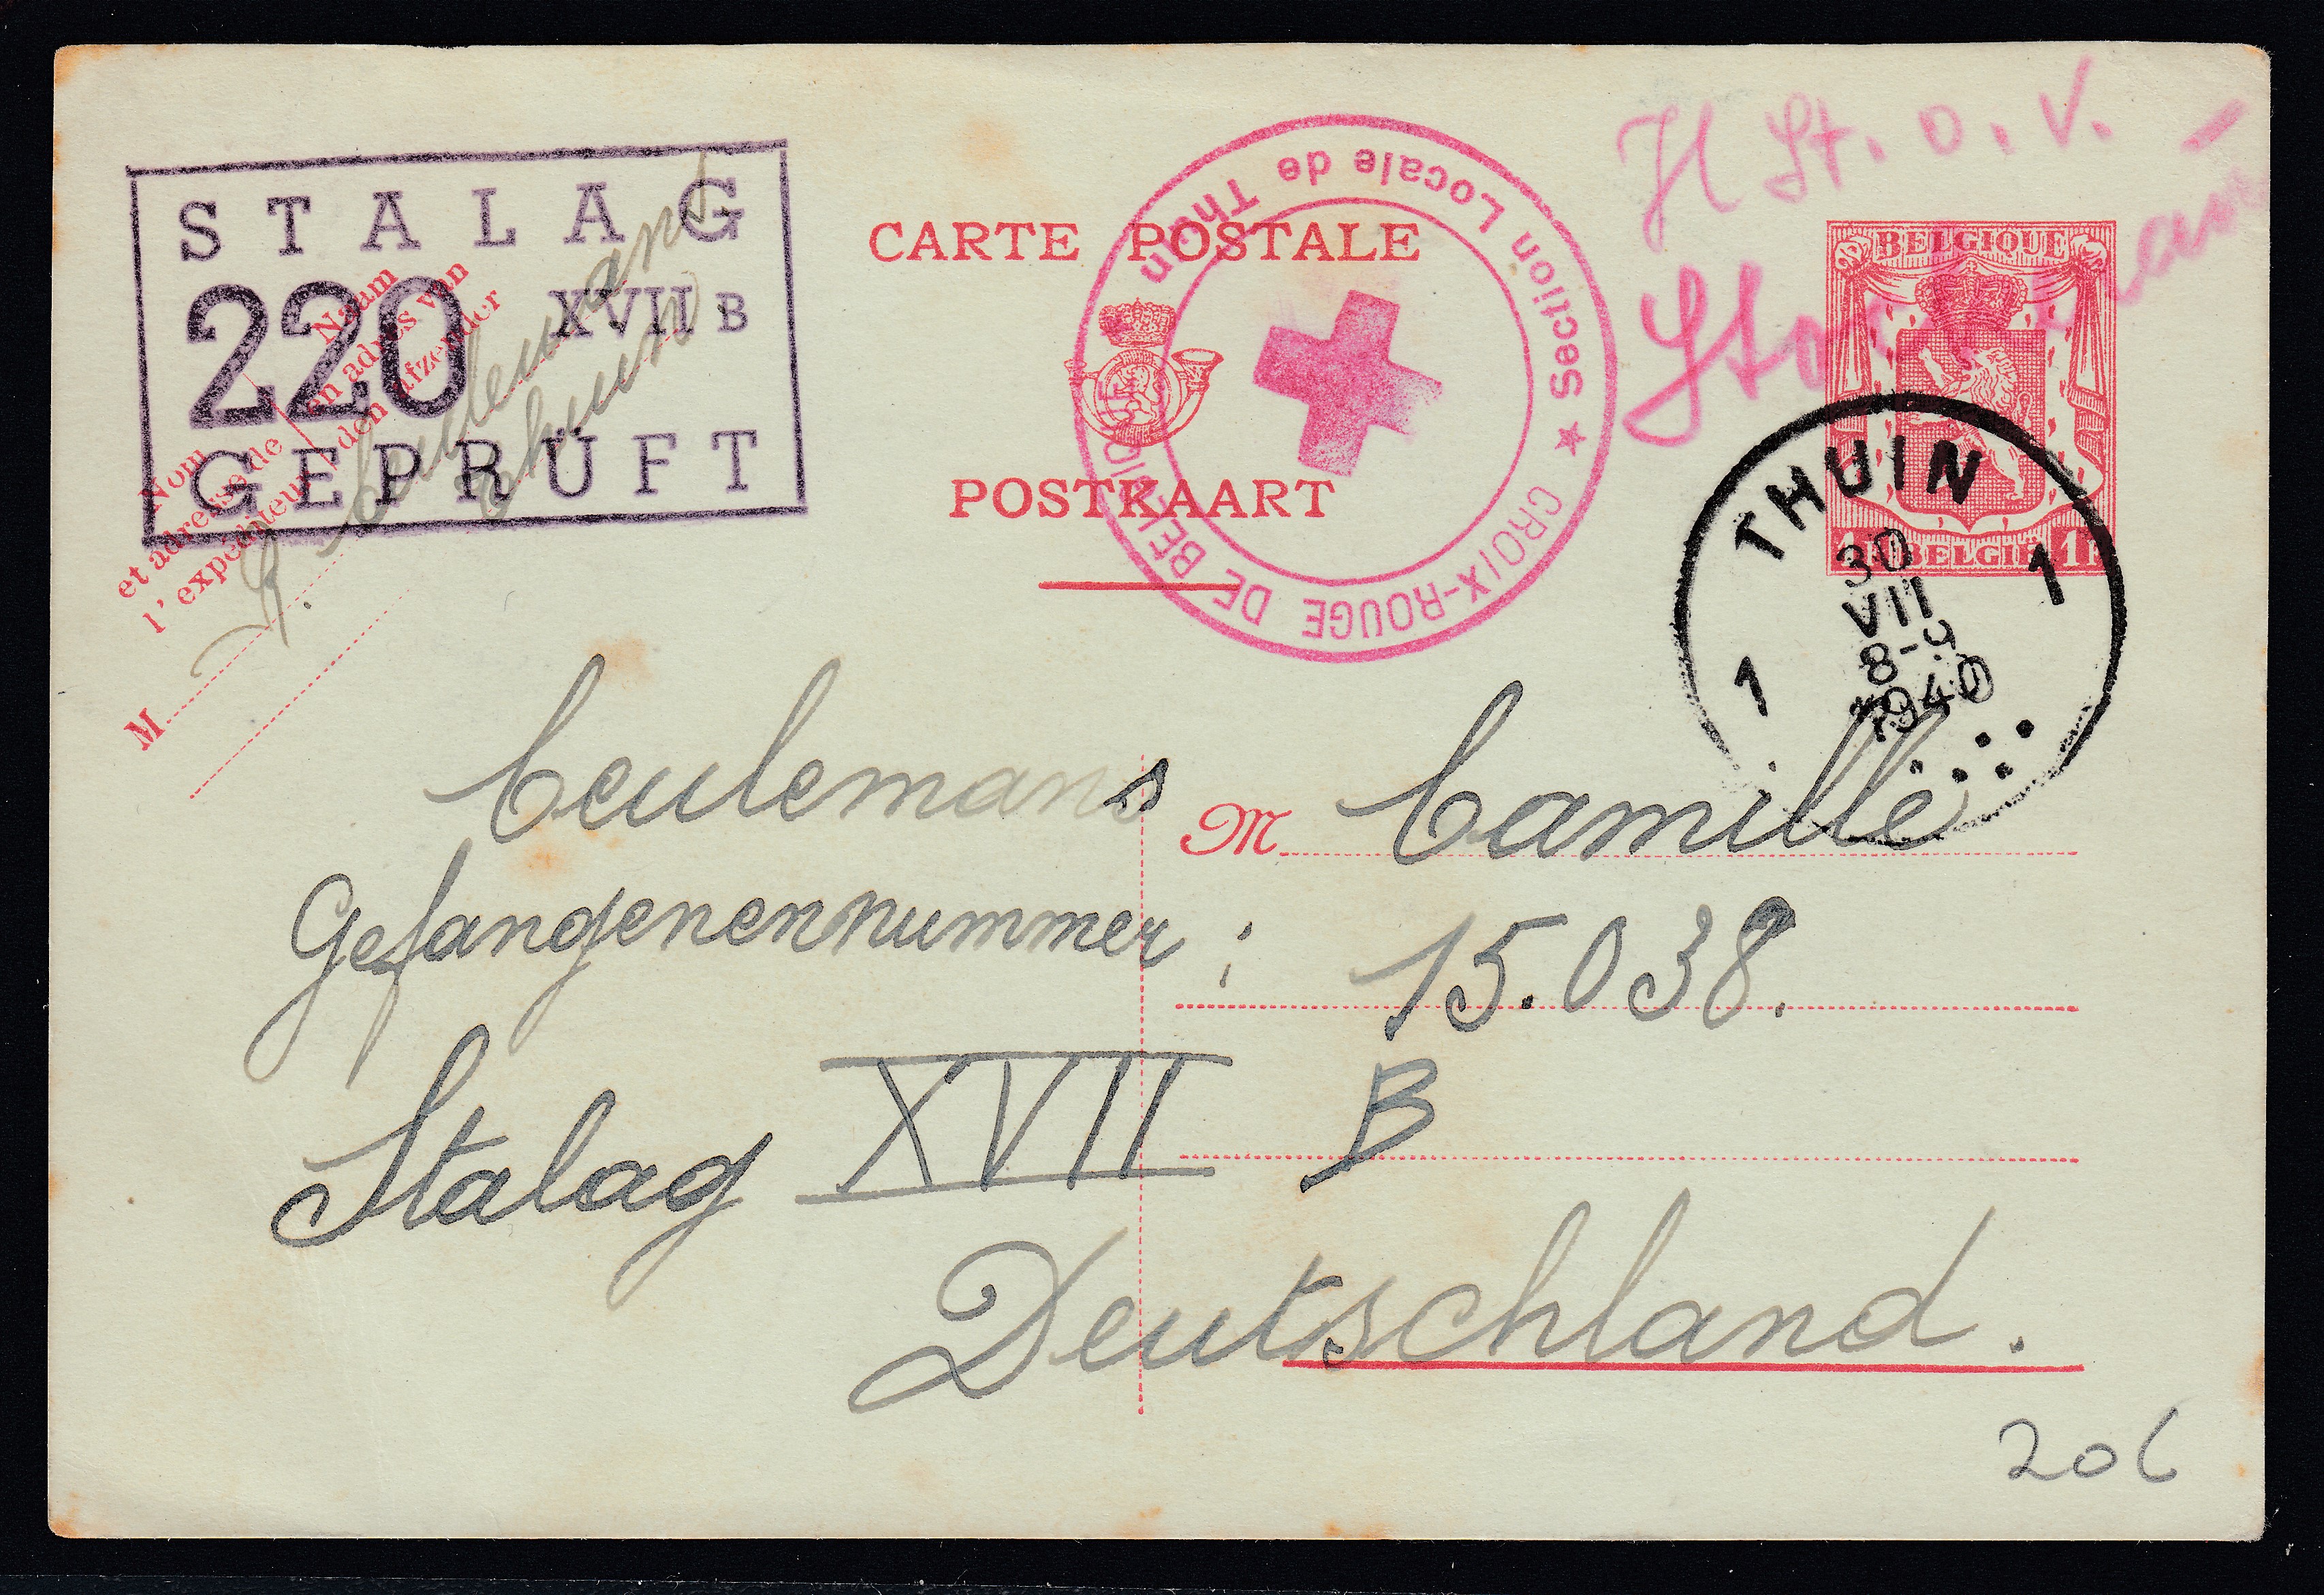 STALAG
220 XVII B
GEPRÜFT
Naam
en adres van
den afzender
Nom
et adresse de
l'expéditeur
M
Ceulemans
Thuin
CARTE POSTALE
POSTKAART
CROIX-ROUGE DE BELGIQUE ★ Section Locale de Thuin
H St. o. V.
BELGIQUE
1F BELGIE 1F
THUIN
30
VII
8-9
1940
1 1
Ceulemans M Camille
Gefangenennummer : 15.038.
Stalag XVII B
Deutschland.
206